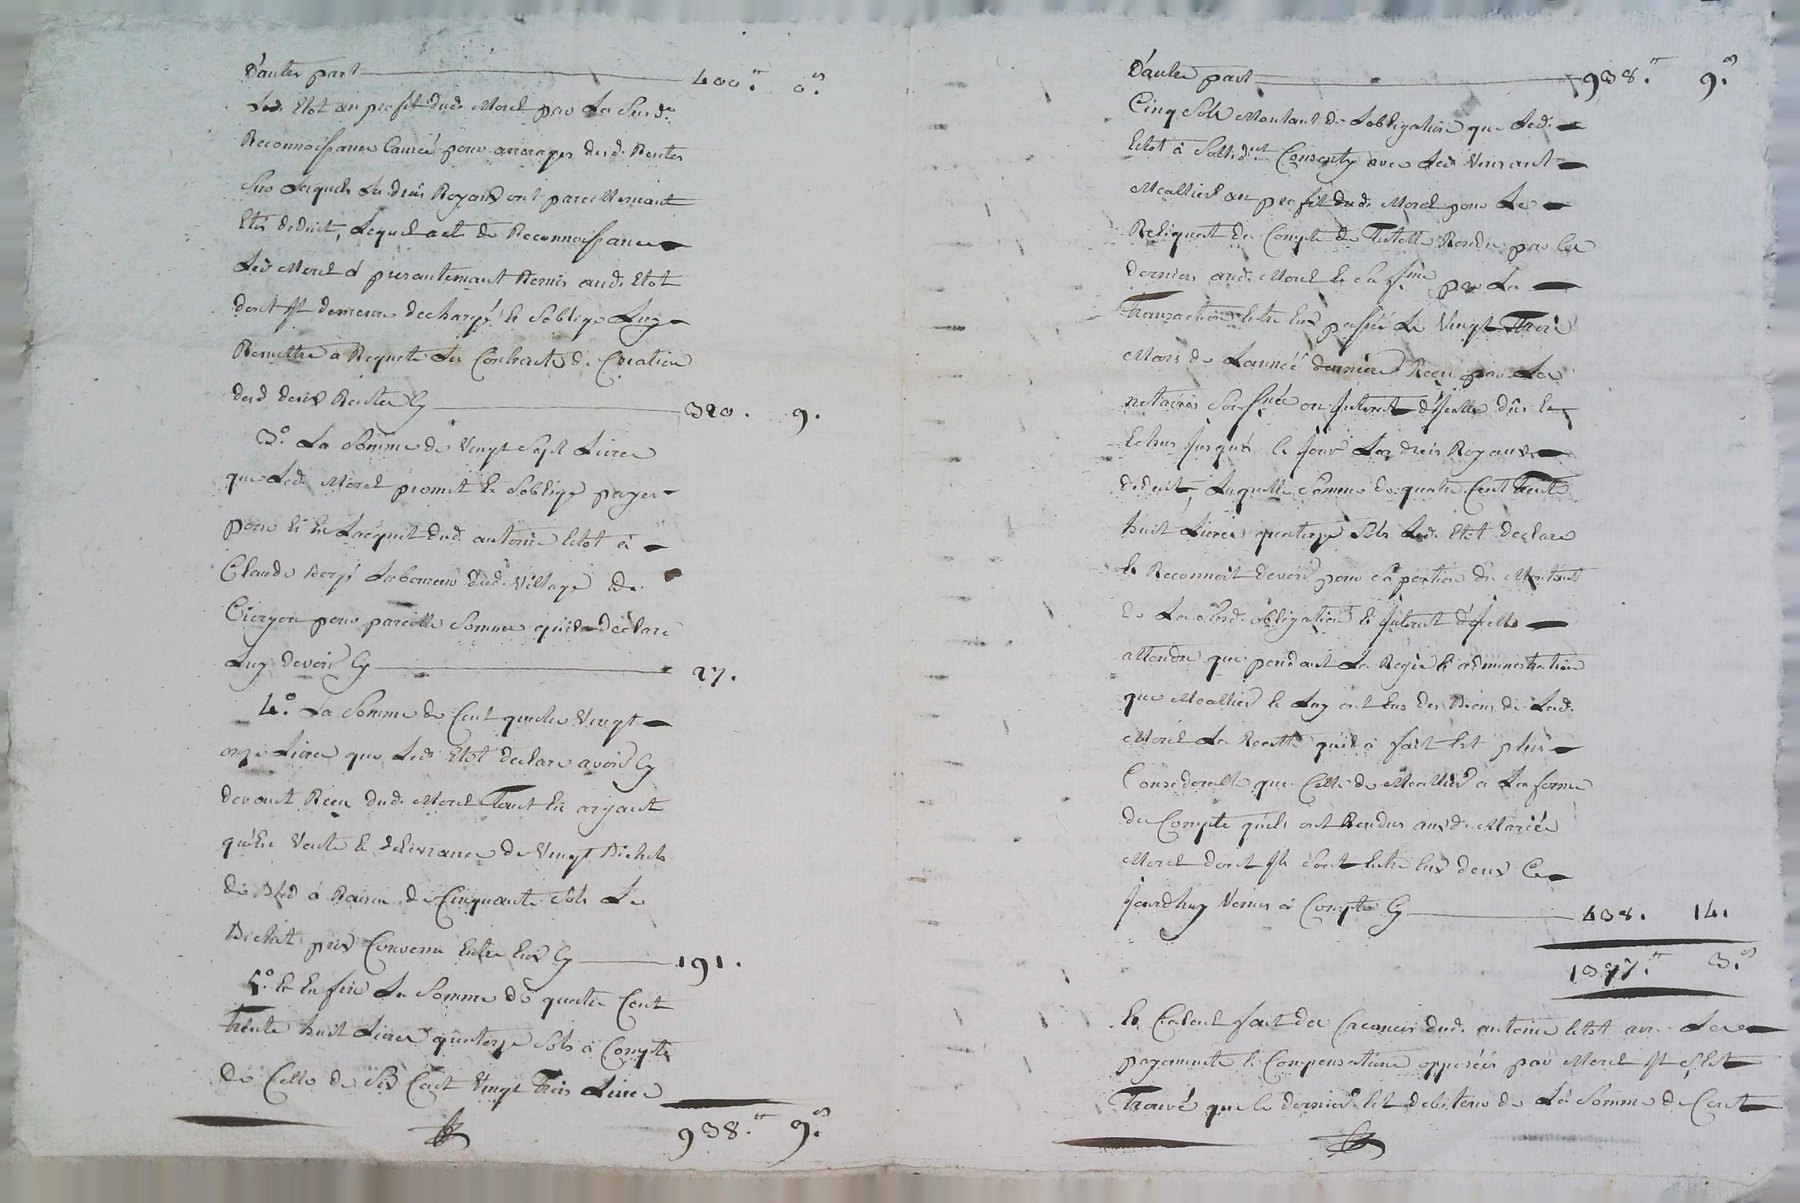 D'autre part 400.tt 0.s
Led. Etot au profit dud. Morel par La Susde
Reconnoissance Causée pour arrerages desd. Rentes
Sur Lesquels Les drois Royaux ont pareillement
Etés deduit, Lequel act de Reconnoissance
Led. Morel á presantemant Remis aud. Etot
dont Il demeure dechargé & Soblige Luy
Remettre a Requete Les Contracts de Creation
desd. deux Rentes Cy 320. 9.
3.o La Somme de Vingt Sept Livres
que Led. Morel promet & Soblige payer
pour & En Lacquit dud. antoine Etot á
Claude Laboureur dud. Village de
Ciergon pour pareille Somme quil declare
Luy devoir Cy 27.
4.o La Somme de Cent quatre Vingt
onze Livres que Led. Etot declare avoir Cy
devant Reçu dud. Morel Tant En argant
qu'En Vente & delivrance de Vingt Bichets
de Bled á Raison de Cinquante Sols Le
Bichet prix Convenu Entre Eux Cy 191.
5.o & Enfin La Somme de quatre Cent
Trente huit Livres quatorze Sols á Compte
de Celle de Six Cent Vingt Trois Livres
938.tt 9.s
D'autre part 938.tt 9.s
Cinq Sols Montant de Lobligation que Led.
Etot á Solidnt Consenty avec Led. Vincent
Meallier au profit dud. Morel pour Le
Reliquat du Compte de Tutelle Rendu par Ces
derniers aud. Morel & En fin par La
Transaction Entre Eux passée Le Vingt Trois
Mars de Lannée derniere Reçu par Les
notaires Sousné ou Interet d'Icelle dûs &
Echus Jusqu'á Ce Jour Les drois Royaux
deduit, Laquelle Somme de quatre Cent Trente
huit Livres quatorze Sols Led. Etot declare
& Reconnoit devoir pour sa portion du Montant
de La Susd. obligation & Interet d'Icelle
attendu que pendant La Regie & administration
que Meallier & Luy ont Eus des Biens de Led.
Morel La Recette qu'il á fait Est plus
Considerable que Celle de Meallier á La forme
du Compte qu'ils ont Rendus aux d. Mariés
Morel dont Ils Sont Entre Eux deux Ce
Jourdhuy Venus á Compte Cy 438. 14.
1377.tt 3.s
Le Calcul fait des Creances dud. antoine Etot avec Les
payements & Compensations opposées par Morel Il s'Est
Trouvé que Ce dernier Est debiteur de La Somme de Cent